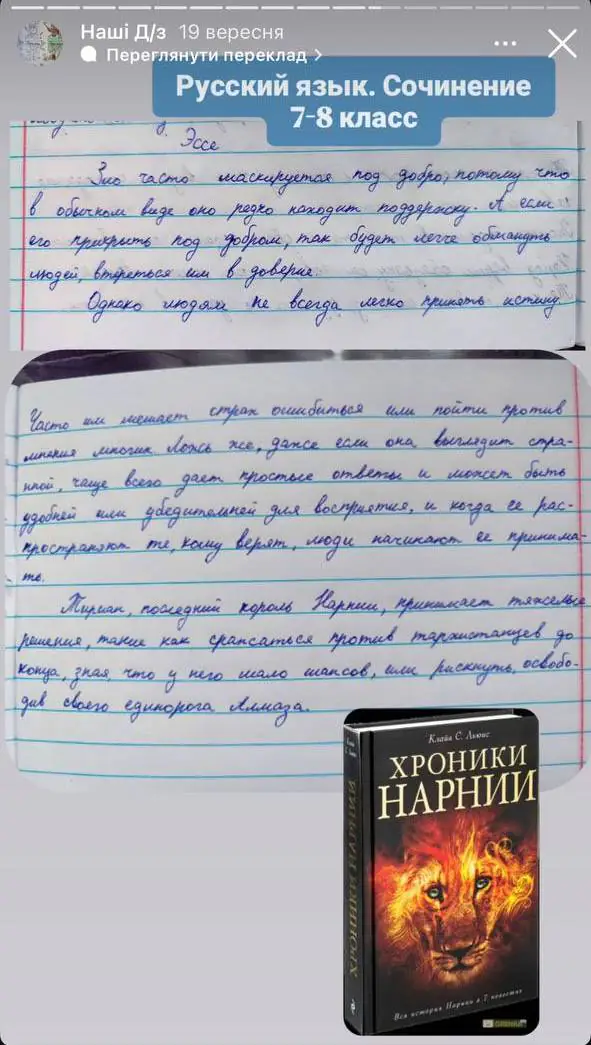 Наші Д/з 19 вересня
Переглянути переклад >
Русский язык. Сочинение
7-8 класс
Эссе
Зло часто маскируется под добро, потому что
в обычном виде оно редко находит поддержку. А если
его прикрыть под добром, так будет легче обмануть
людей, втереться им в доверие.
Однако людям не всегда легко принять истину
Часто им мешает страх ошибиться или пойти против
мнения многих. Ложь же, даже если она выглядит стра-
нной, чаще всего дает простые ответы и может быть
удобней или убедительней для восприятия, и когда ее рас-
пространяют те, кому верят, люди начинают ее принима-
ть.
Тириан, последний король Нарнии, принимает тяжелые
решения, такие как сражаться против тархистанцев до
конца, зная, что у него мало шансов, или рискнуть, освобо-
див своего единорога Алмаза.
Клайв С. Льюис
ХРОНИКИ
НАРНИИ
ХРОНИКИ НАРНИИ
Вся история Нарнии в 7 повестях